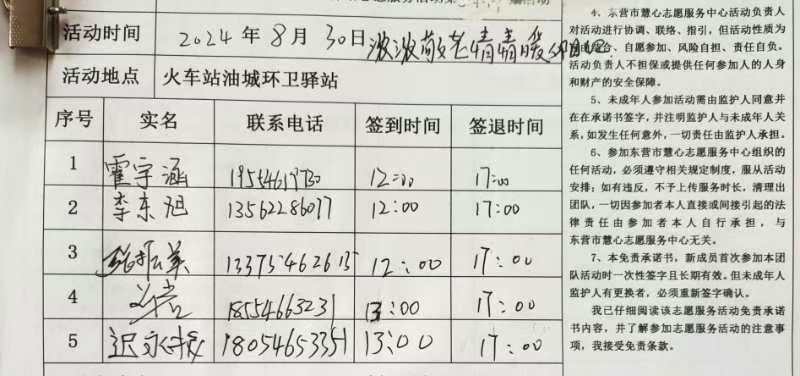 活动时间 2024年8月30日波波敬老情暖
活动地点 火车站油城环卫驿站
序号 实名 联系电话 签到时间 签退时间
1 霍宇涵 12:00 17:00
2 李东旭 13562286077 12:00 17:00
3 13375462615 12:00 17:00
4 18554663231 13:00 17:00
5 18054653351 13:00 17:00
4、东营市慧心志愿服务中心活动负责人
对活动进行协调、联络、指引,但活动性质为
、自愿参加、风险自担、责任自负。
活动负责人不担保或提供任何参加人的人身
和财产的安全保障。
5、未成年人参加活动需由监护人同意并
在在承诺书签字,并注明监护人与未成年人关
系,如发生任何意外,一切责任由监护人承担。
6、参加东营市慧心志愿服务中心组织的
任何活动,必须遵守相关规定制度,服从活动
安排;如有违反,不予上传服务时长,清理出
团队,一切因参加者本人直接或间接引起的法
律责任由参加者本人自行承担,与
东营市慧心志愿服务中心无关。
7、本免责承诺书,新成员首次参加本团
队活动时一次性签字且长期有效。但未成年人
监护人有更换者,必须重新签字确认。
我已仔细阅读该志愿服务活动免责承诺
书内容,并了解参加志愿服务活动的注意事
项,我接受免责条款。